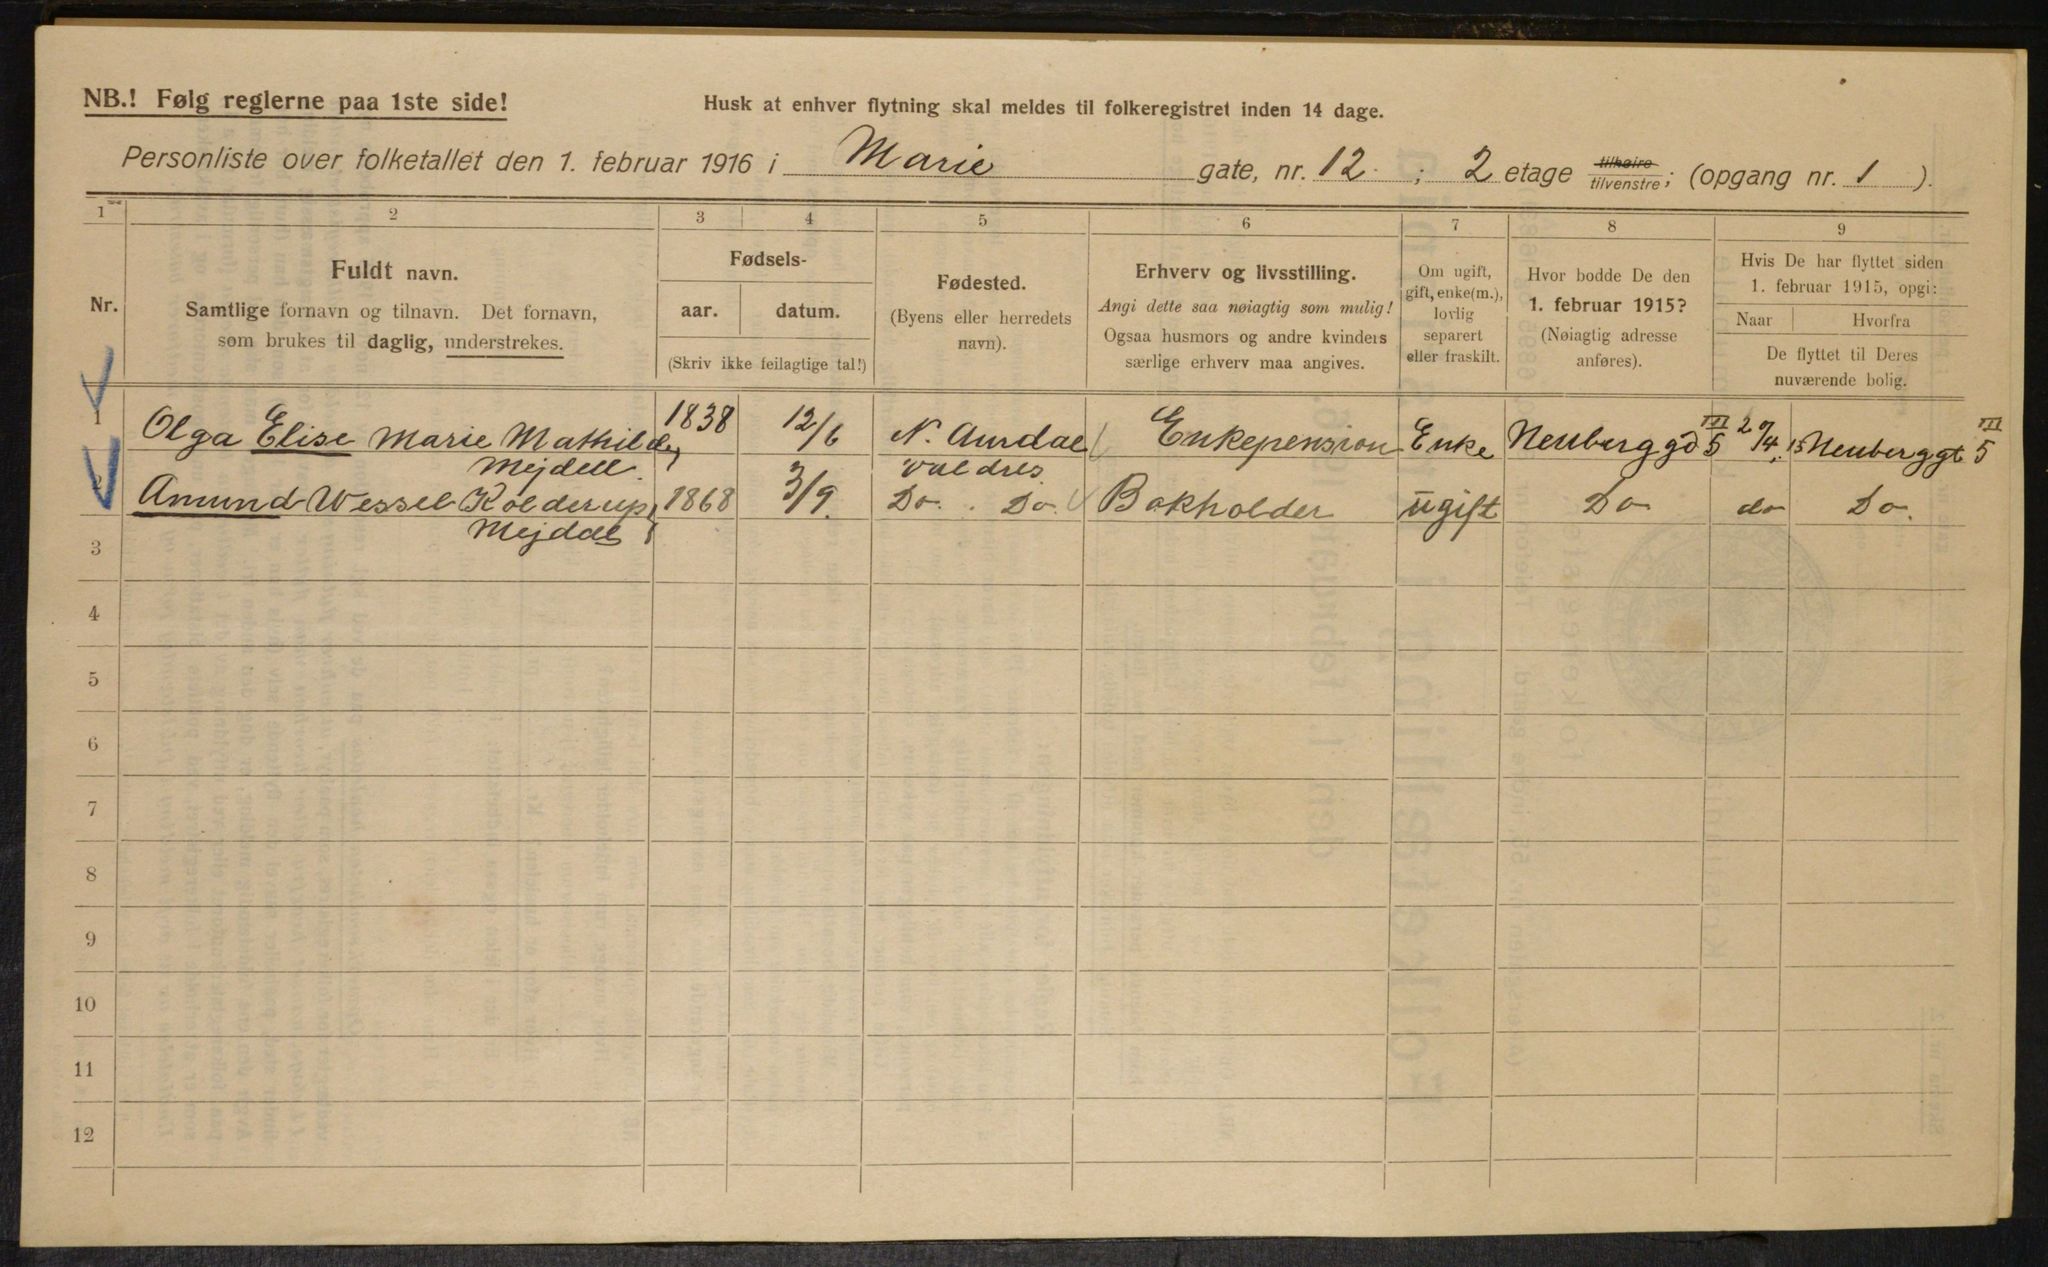 NB.! Følg reglerne paa 1ste side!
Husk at enhver flytning skal meldes til folkeregistret inden 14 dage.
Personliste over folketallet den 1. februar 1916 i Marie gate, nr. 12. ; 2 etage tilhøire tilvenstre; (opgang nr. 1 ).
1 2 3 4 5 6 7 8 9
Nr.
Fuldt navn.
Samtlige fornavn og tilnavn. Det fornavn,
som brukes til daglig, understrekes.
Fødsels-
aar. datum.
(Skriv ikke feilagtige tal!)
Fødested.
(Byens eller herredets
navn).
Erhverv og livsstilling.
Angi dette saa nøiagtig som mulig!
Ogsaa husmors og andre kvinders
særlige erhverv maa angives.
Om ugift,
gift, enke(m.),
lovlig
separert
eller fraskilt.
Hvor bodde De den
1. februar 1915?
(Nøiagtig adresse
anføres).
Hvis De har flyttet siden
1. februar 1915, opgi:
Naar Hvorfra
De flyttet til Deres
nuværende bolig.
1 Olga Elise Marie Mathilde 1838 12/6 N. Aurdal Enkepension Enke Neuberggd 5 III Neuberggt 5 III
Mejdell. Valdres.
2 Amund Wessel Kolderup 1868 3/9. Do. Do. Bokholder ugift Do do Do.
Mejdell
3
4
5
6
7
8
9
10
11
12